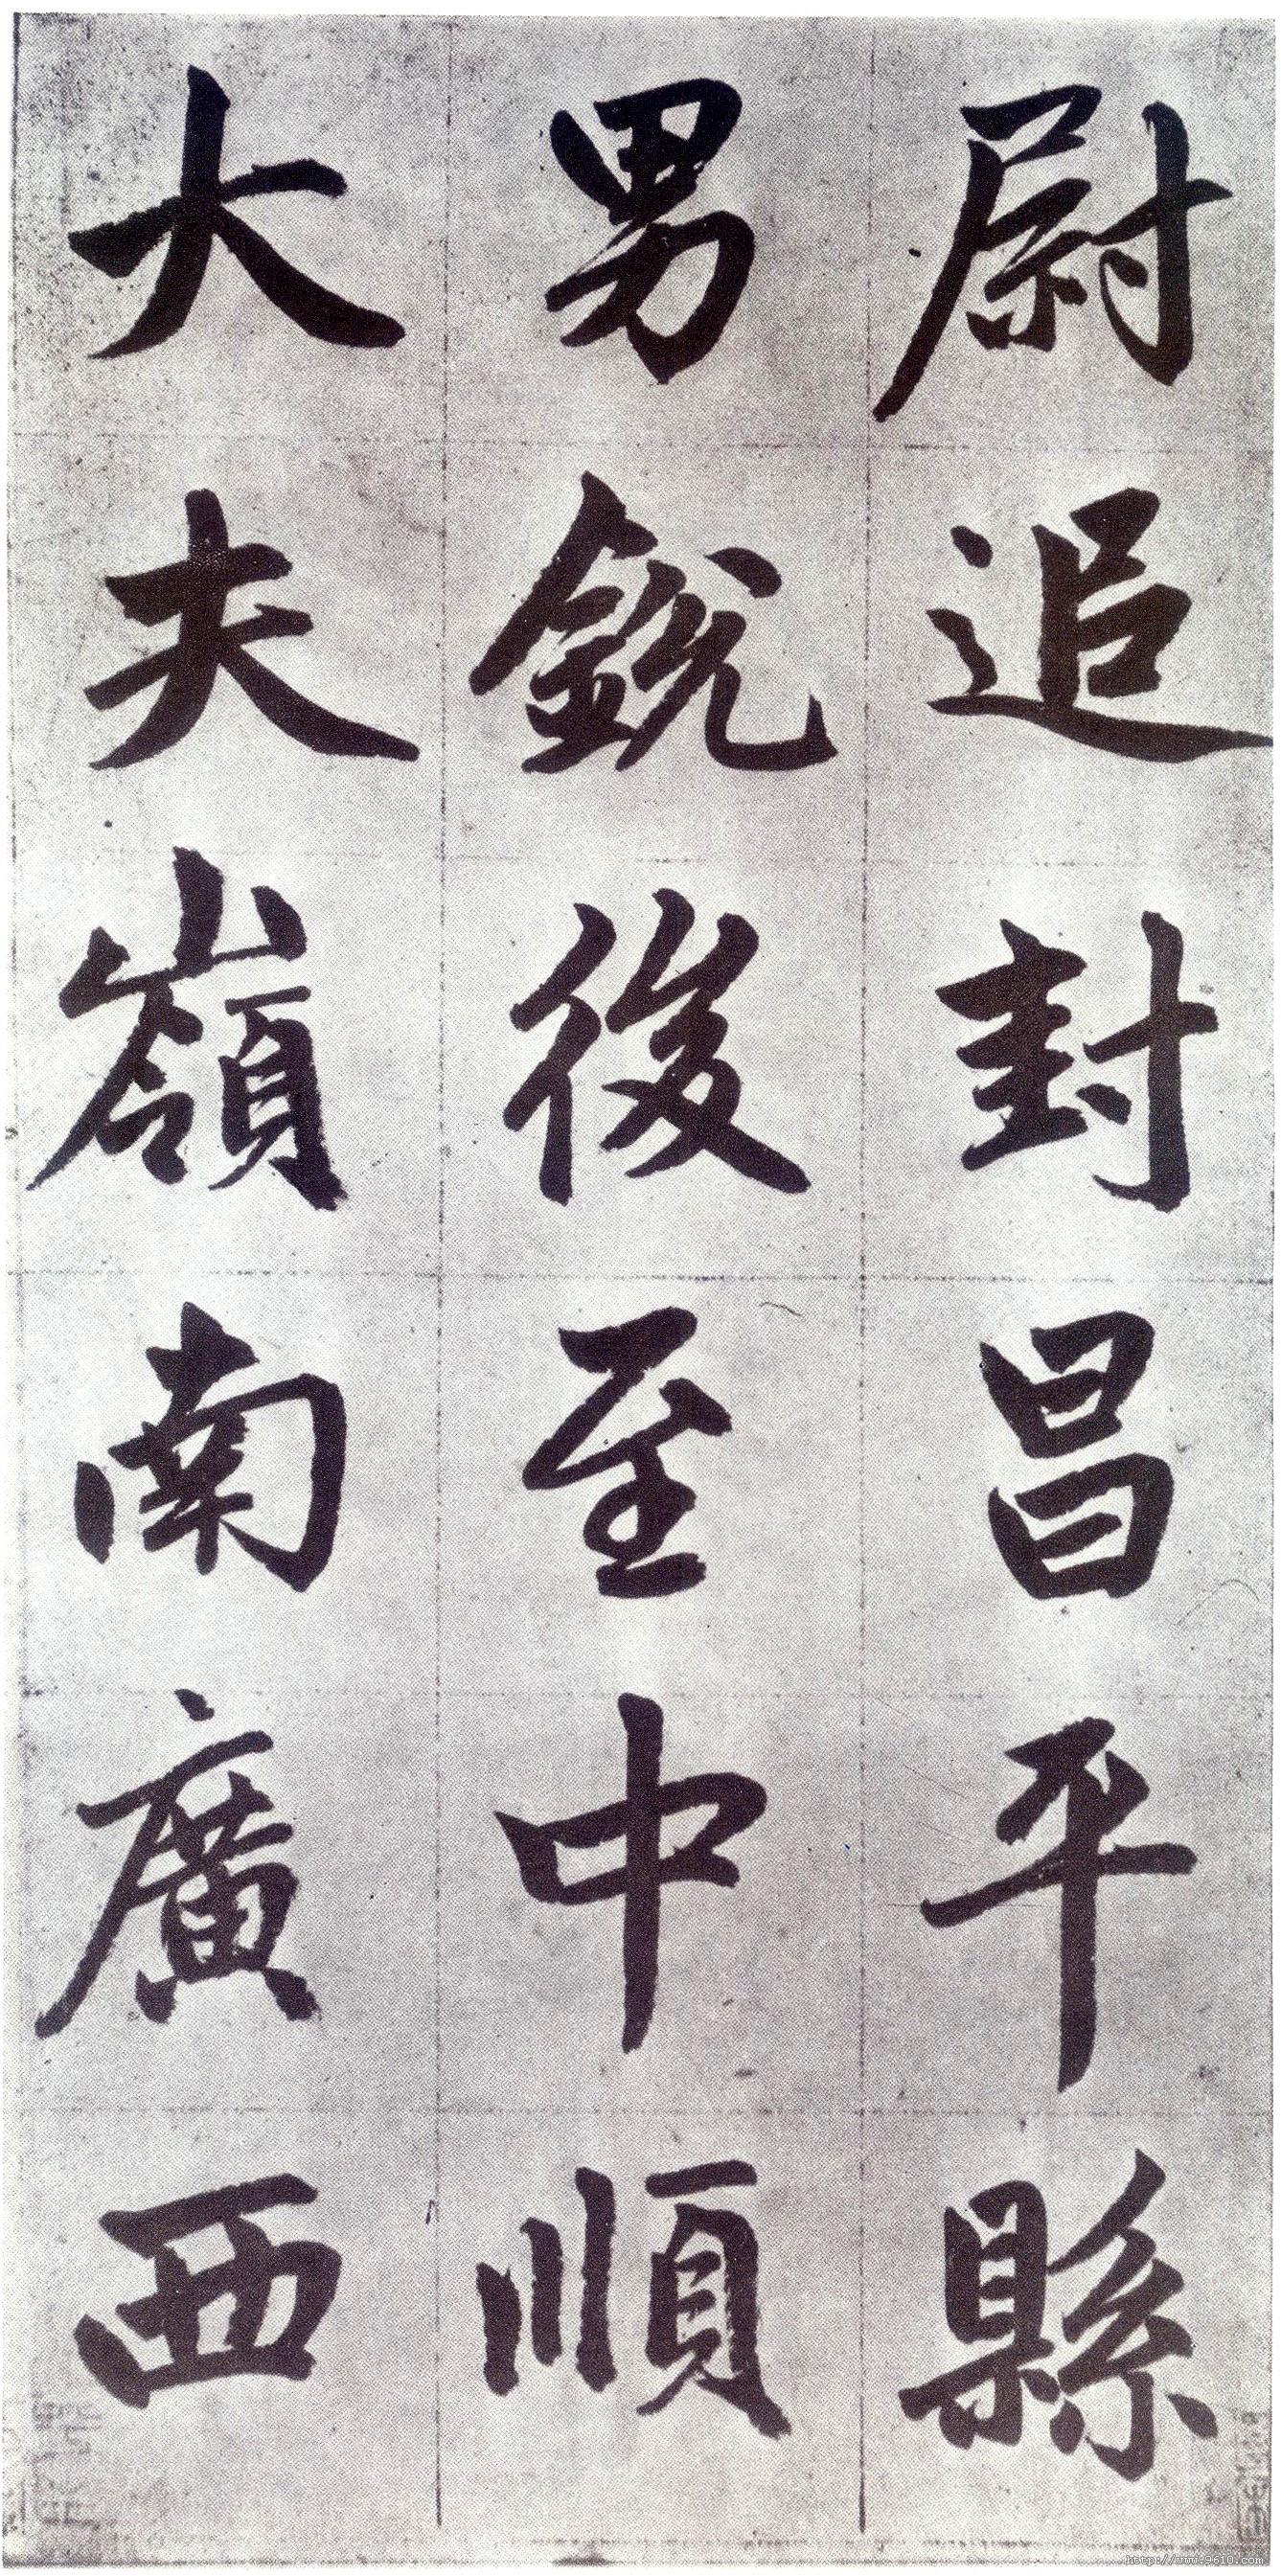 尉追封昌平縣
男銳後至中順
大夫嶺南廣西
http://www.9610.com